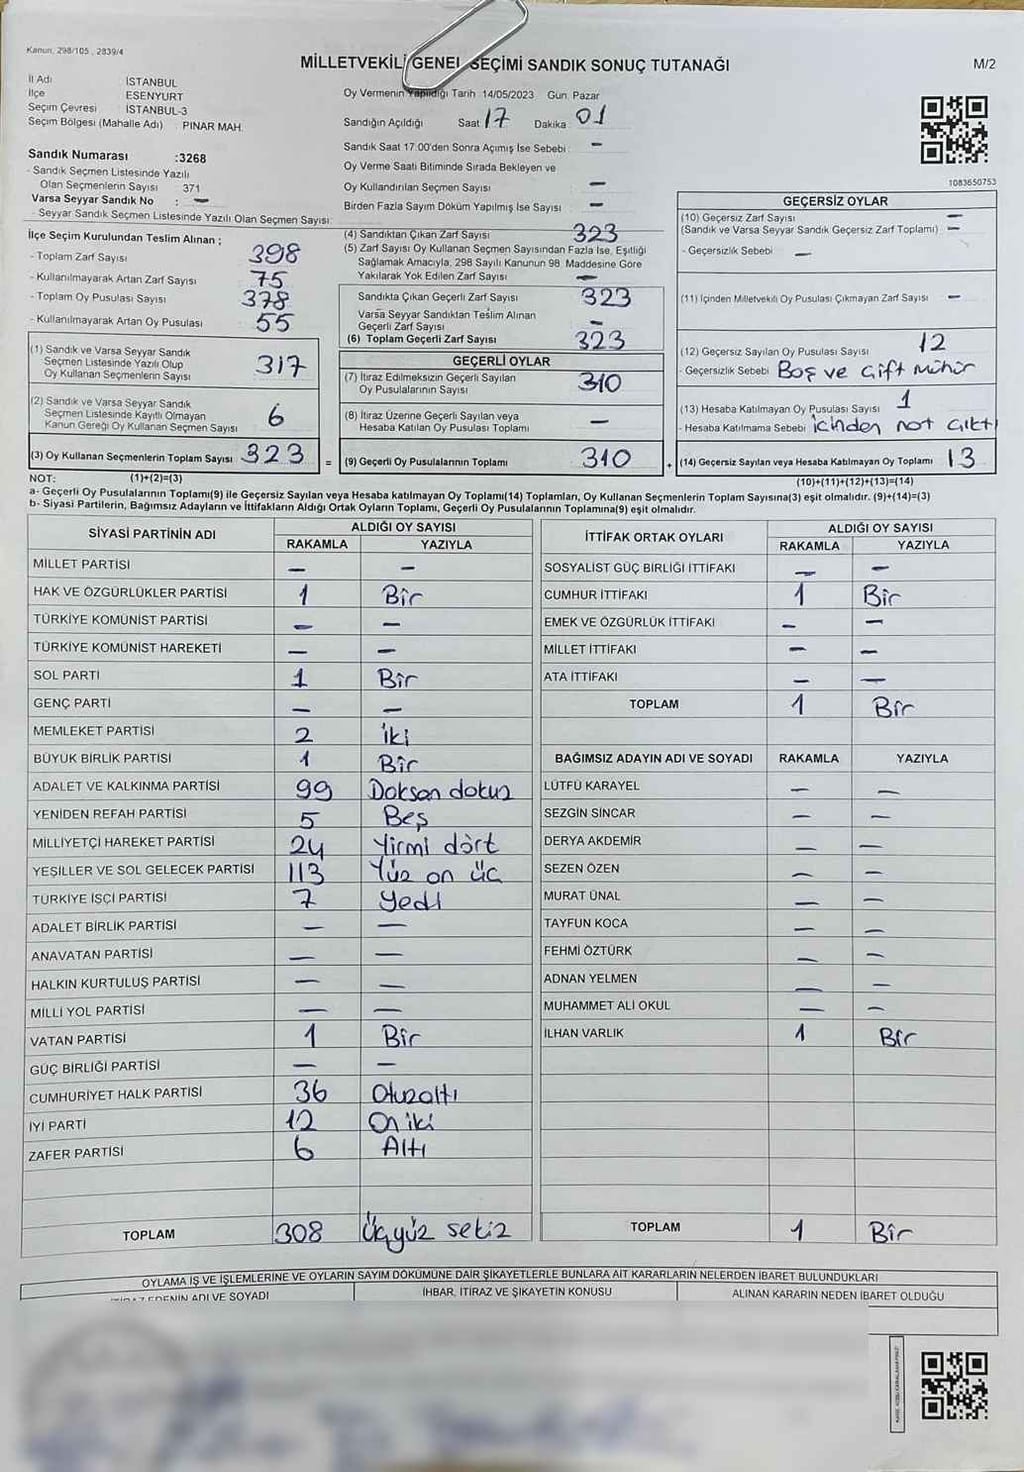 Kanun, 298/105 , 2839/4
MİLLETVEKİLİ GENEL SEÇİMİ SANDIK SONUÇ TUTANAĞI
M/2
İl Adı İSTANBUL
İlçe ESENYURT
Seçim Çevresi İSTANBUL-3
Seçim Bölgesi (Mahalle Adı) PINAR MAH.
Oy Vermenin Yapıldığı Tarih 14/05/2023 Gün. Pazar
Sandığın Açıldığı Saat 17 Dakika 01
Sandık Saat 17:00'den Sonra Açımış İse Sebebi: -
Oy Verme Saati Bitiminde Sırada Bekleyen ve
Oy Kullandırılan Seçmen Sayısı -
Birden Fazla Sayım Döküm Yapılmış İse Sayısı -
Sandık Numarası :3268
- Sandık Seçmen Listesinde Yazılı
Olan Seçmenlerin Sayısı 371
Varsa Seyyar Sandık No : -
- Seyyar Sandık Seçmen Listesinde Yazılı Olan Seçmen Sayısı:
1083650753
İlçe Seçim Kurulundan Teslim Alınan ;
- Toplam Zarf Sayısı 398
- Kullanılmayarak Artan Zarf Sayısı 75
- Toplam Oy Pusulası Sayısı 378
- Kullanılmayarak Artan Oy Pusulası 55
(1) Sandık ve Varsa Seyyar Sandık
Seçmen Listesinde Yazılı Olup
Oy Kullanan Seçmenlerin Sayısı 317
(2) Sandık ve Varsa Seyyar Sandık
Seçmen Listesinde Kayıtlı Olmayan
Kanun Gereği Oy Kullanan Seçmen Sayısı 6
(3) Oy Kullanan Seçmenlerin Toplam Sayısı 323 =
(4) Sandıktan Çıkan Zarf Sayısı 323
(5) Zarf Sayısı Oy Kullanan Seçmen Sayısından Fazla İse, Eşitliği
Sağlamak Amacıyla, 298 Sayılı Kanunun 98. Maddesine Göre
Yakılarak Yok Edilen Zarf Sayısı -
Sandıkta Çıkan Geçerli Zarf Sayısı 323
Varsa Seyyar Sandıktan Teslim Alınan
Geçerli Zarf Sayısı -
(6) Toplam Geçerli Zarf Sayısı 323
GEÇERLİ OYLAR
(7) İtiraz Edilmeksizin Geçerli Sayılan
Oy Pusulalarının Sayısı 310
(8) İtiraz Üzerine Geçerli Sayılan veya
Hesaba Katılan Oy Pusulası Toplamı -
(9) Geçerli Oy Pusulalarının Toplamı 310 +
GEÇERSİZ OYLAR
(10) Geçersiz Zarf Sayısı -
(Sandık ve Varsa Seyyar Sandık Geçersiz Zarf Toplamı) -
- Geçersizlik Sebebi -
(11) İçinden Milletvekili Oy Pusulası Çıkmayan Zarf Sayısı -
(12) Geçersiz Sayılan Oy Pusulası Sayısı 12
- Geçersizlik Sebebi Boş ve Çift mühür
(13) Hesaba Katılmayan Oy Pusulası Sayısı 1
- Hesaba Katılmama Sebebi içinden not çıktı
(14) Geçersiz Sayılan veya Hesaba Katılmayan Oy Toplamı 13
NOT: (1)+(2)=(3) (10)+(11)+(12)+(13)=(14)
a- Geçerli Oy Pusulalarının Toplamı(9) ile Geçersiz Sayılan veya Hesaba katılmayan Oy Toplamı(14) Toplamları, Oy Kullanan Seçmenlerin Toplam Sayısına(3) eşit olmalıdır. (9)+(14)=(3)
b- Siyasi Partilerin, Bağımsız Adayların ve İttifakların Aldığı Ortak Oyların Toplamı, Geçerli Oy Pusulalarının Toplamına(9) eşit olmalıdır.
SİYASİ PARTİNİN ADI ALDIĞI OY SAYISI
RAKAMLA YAZIYLA
MİLLET PARTİSİ - -
HAK VE ÖZGÜRLÜKLER PARTİSİ 1 Bir
TÜRKİYE KOMÜNİST PARTİSİ - -
TÜRKİYE KOMÜNİST HAREKETİ - -
SOL PARTİ 1 Bir
GENÇ PARTİ - -
MEMLEKET PARTİSİ 2 iki
BÜYÜK BİRLİK PARTİSİ 1 Bir
ADALET VE KALKINMA PARTİSİ 99 Doksan dokuz
YENİDEN REFAH PARTİSİ 5 Beş
MİLLİYETÇİ HAREKET PARTİSİ 24 Yirmi dört
YEŞİLLER VE SOL GELECEK PARTİSİ 113 Yüz on üç
TÜRKİYE İŞÇİ PARTİSİ 7 Yedi
ADALET BİRLİK PARTİSİ - -
ANAVATAN PARTİSİ - -
HALKIN KURTULUŞ PARTİSİ - -
MİLLİ YOL PARTİSİ - -
VATAN PARTİSİ 1 Bir
GÜÇ BİRLİĞİ PARTİSİ - -
CUMHURİYET HALK PARTİSİ 36 Otuzaltı
İYİ PARTİ 12 On iki
ZAFER PARTİSİ 6 Altı
TOPLAM 308 Üçyüz sekiz
İTTİFAK ORTAK OYLARI ALDIĞI OY SAYISI
RAKAMLA YAZIYLA
SOSYALİST GÜÇ BİRLİĞİ İTTİFAKI - -
CUMHUR İTTİFAKI 1 Bir
EMEK VE ÖZGÜRLÜK İTTİFAKI - -
MİLLET İTTİFAKI - -
ATA İTTİFAKI - -
TOPLAM 1 Bir
BAĞIMSIZ ADAYIN ADI VE SOYADI RAKAMLA YAZIYLA
LÜTFÜ KARAYEL - -
SEZGİN SİNCAR - -
DERYA AKDEMİR - -
SEZEN ÖZEN - -
MURAT ÜNAL - -
TAYFUN KOCA - -
FEHMİ ÖZTÜRK - -
ADNAN YELMEN - -
MUHAMMET ALİ OKUL - -
İLHAN VARLIK 1 Bir
TOPLAM 1 Bir
OYLAMA İŞ VE İŞLEMLERİNE VE OYLARIN SAYIM DÖKÜMÜNE DAİR ŞİKAYETLERLE BUNLARA AİT KARARLARIN NELERDEN İBARET BULUNDUKLARI
İTİRAZ EDENİN ADI VE SOYADI İHBAR, İTİRAZ VE ŞİKAYETİN KONUSU ALINAN KARARIN NEDEN İBARET OLDUĞU